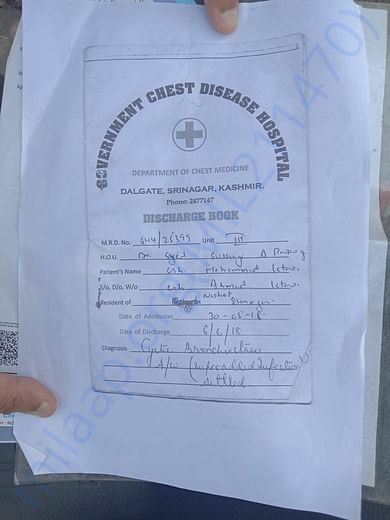 GOVERNMENT CHEST DISEASE HOSPITAL
DEPARTMENT OF CHEST MEDICINE
DALGATE, SRINAGAR, KASHMIR.
Phone: 2477147
DISCHARGE BOOK
M.R.D. No. 544/25399 Unit III
H.O.U. Dr. Syed
Patient's Name Gh Mohammad
S/o, D/o, W/o Gh Ahmad
Resident of Nishat
Date of Admission 30-05-18
Date of Discharge 6/6/18
Diagnosis Cystic Bronchiectasis
Superadded Infection
Settled